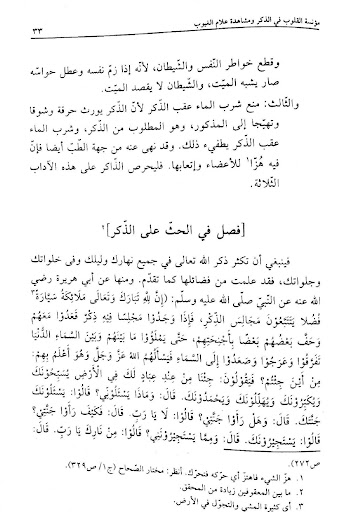 مؤنسة القلوب في الذكر ومشاهدة علام الغيوب
٣٣
وقطع خواطر النّفس والشّيطان، لأنّه إذا زمّ نفسه وعطل حواسّه
صار يشبه الميّت، والشّيطان لا يقصد الميّت.
والثّالث: منع شرب الماء عقب الذّكر لأنّ الذّكر يورث حرقة وشوقا
وتهيّجا إلى المذكور، وهو المطلوب من الذّكر، وشرب الماء
عقب الذّكر يطفيء ذلك. وقد نهى عنه من جهة الطّبّ أيضا فإنّ
فيه هُزّا١ للأعضاء وإتعابها. فليحرص الذّاكر على هذه الآداب
الثّلاثة.
[فصل في الحثّ على الذّكر]٢
فينبغي أن تكثر ذكر الله تعالى في جميع نهارك وليلك وفي خلواتك
وجلواتك، فقد علمت من فضائلها كما تقدّم. ومنها عن أبي هريرة رضي
الله عنه عن النّبيّ صلّى الله عليه وسلّم: (إنَّ لِلّهِ تَبَارَكَ وَتَعَالَى مَلَائِكَةً سَيَّارَةً٣
فُضُلًا يَتَتَبَّعُونَ مَجَالِسَ الذِّكْرِ، فَإِذَا وَجَدُوا مَجْلِسًا فِيهِ ذِكْرٌ قَعَدُوا مَعَهُمْ
وَحَفَّ بَعْضُهُمْ بَعْضًا بِأَجْنِحَتِهِمْ، حَتَّى يَمْلَؤُوا مَا بَيْنَهُمْ وَبَيْنَ السَّمَاءِ الدُّنْيَا
تَفَرَّقُوا وَعَرَجُوا وَصَعَدُوا إِلَى السَّمَاءِ فَيَسْأَلُهُمُ اللهُ عَزَّ وَجَلَّ وَهُوَ أَعْلَمُ بِهِمْ:
مِنْ أَيْنَ جِئْتُمْ؟ فَيَقُولُونَ: جِئْنَا مِنْ عِنْدِ عِبَادٍ لَكَ فِي الْأَرْضِ يُسَبِّحُونَكَ
وَيُكَبِّرُونَكَ وَيُهَلِّلُونَكَ وَيَحْمَدُونَكَ. قَالَ: وَمَاذَا يَسْئَلُونِي؟ قَالُوا: يَسْئَلُونَكَ
جَنَّتَكَ. قَالَ: وَهَلْ رَأَوْا جَنَّتِي؟ قَالُوا: لَا يَا رَبِّ. قَالَ: فَكَيْفَ رَأَوْا جَنَّتِي؟
قَالُوا: يَسْتَجِيرُونَكَ. قَالَ: وَمِمَّا يَسْتَجِيرُونَنِي؟ قَالُوا: مِنْ نَارِكَ يَا رَبِّ. قَالَ:
ص٢٧٢).
١. هزّ الشيء فاهتز أي حركه فتحرك. أنظر: مختار الصّحاح (ج١/ ص٣٢٩)
٢. ما بين المعقوفين زيادة من المحقق.
٣. أي كثيرة المشي والتجوّل في الأرض.